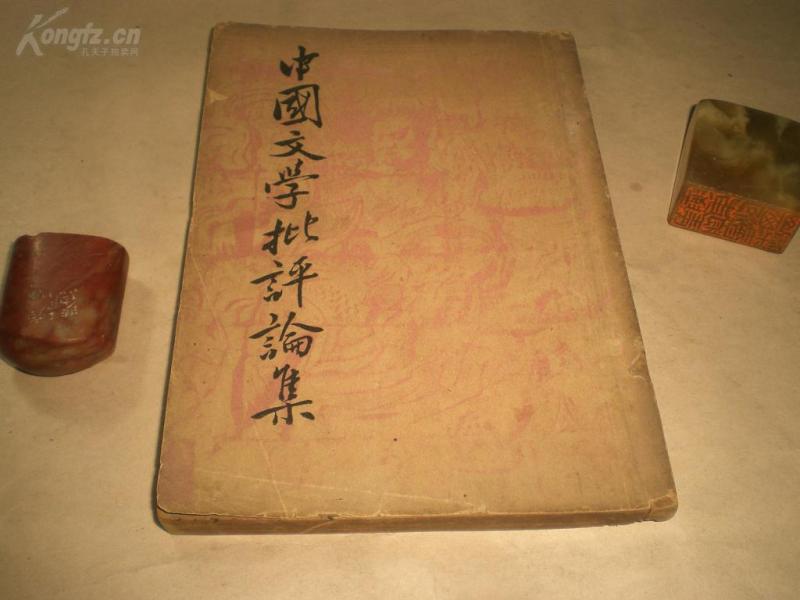 Kongfz.cn
孔夫子拍卖网
中國文學批評論集